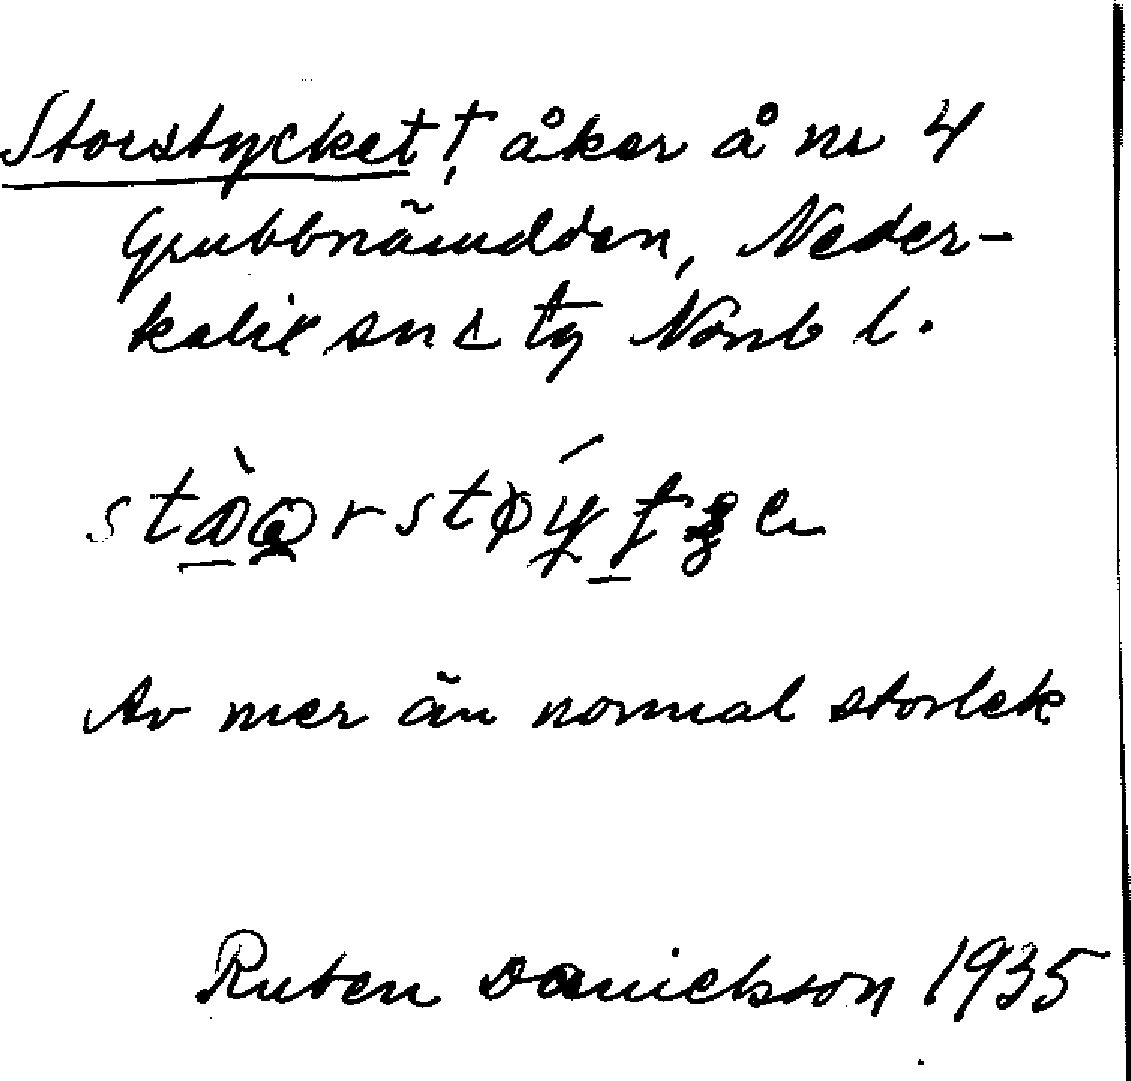 Storstycket †, åker å nr 4
Grubbnäudden, Neder-
kalix sn o tg Norrb l.
Av mer än normal storlek
Ruben Danielsson 1935